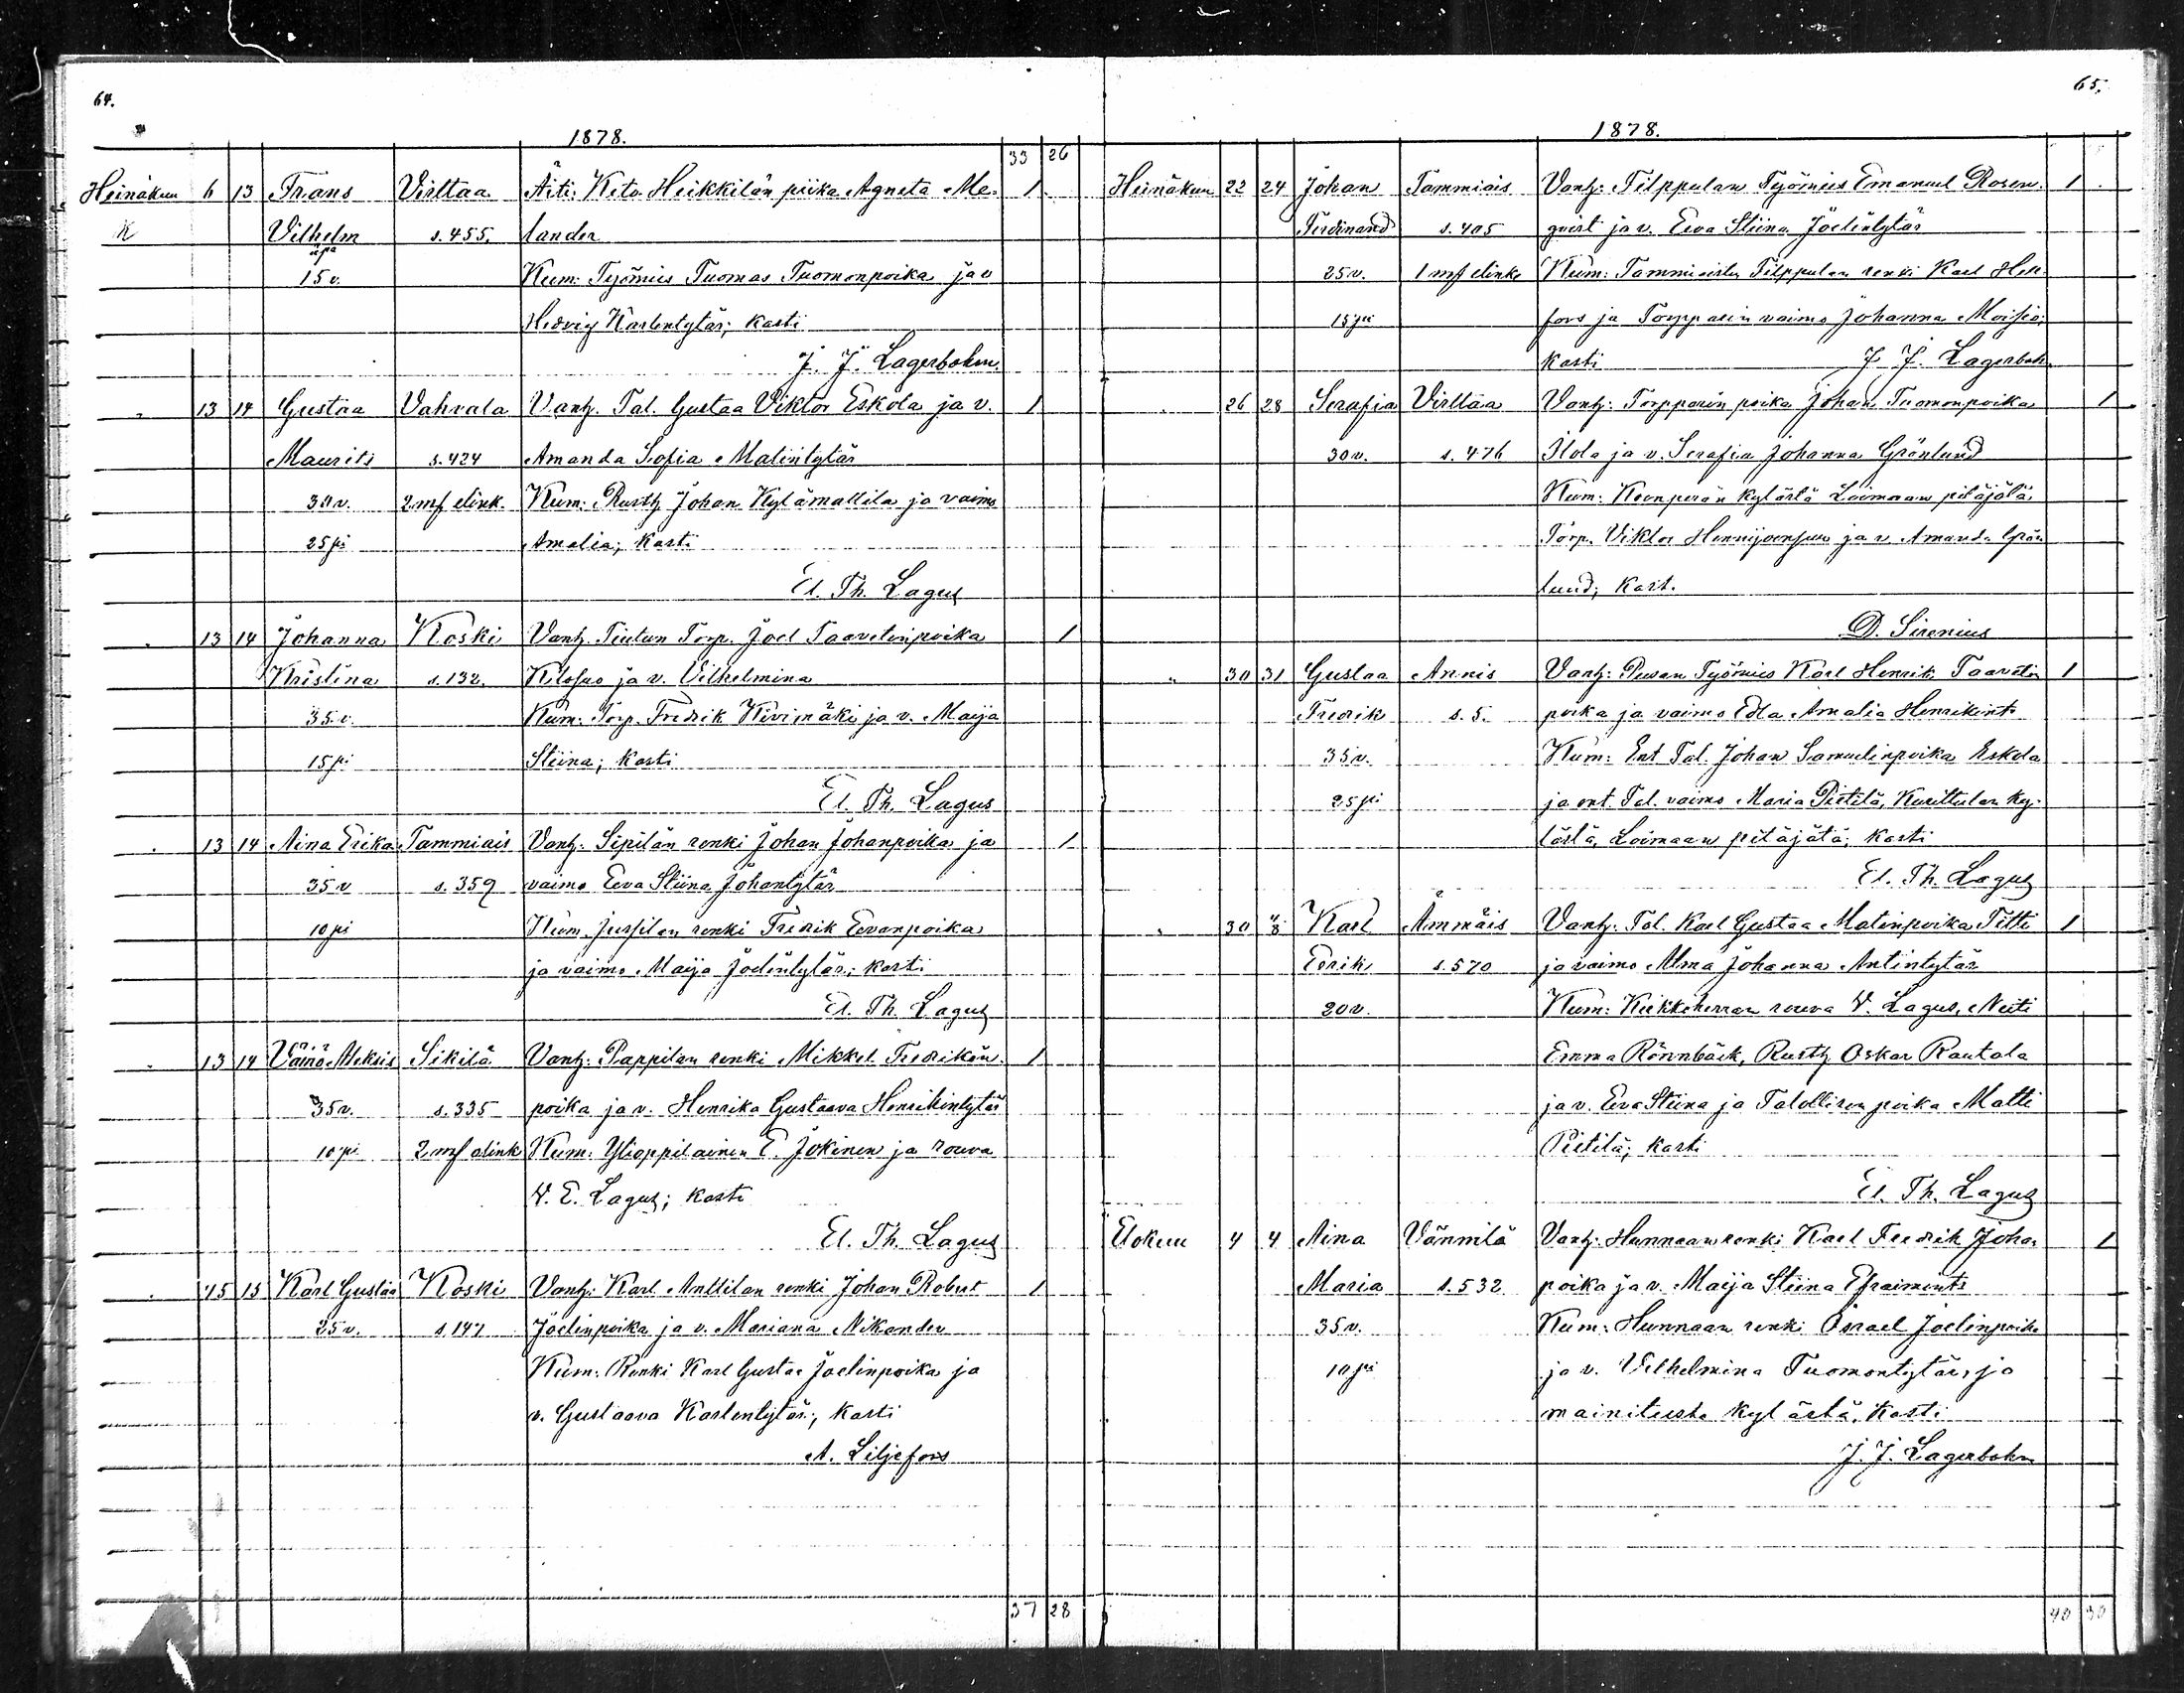 64.
1878.
33 26
Heinäkuu 6 13 Frans Virttaa Äiti: Keto-Heikkilän piika Agneta Me- 1
K Vilhelm s. 455. lander
äpä
15 v. Kum: Työmies Tuomas Tuomonpoika ja v
Hedvig Karlentytär; kasti
J. J. Lagerbohm.
" 13 14 Gustaa Vahvala Vanh. Tal. Gustaa Viktor Eskola ja v. 1
Maurits s. 424 Amanda Sofia Matintytär
30 v. 2 mf elink. Kum: Rusth. Johan Kylämattila ja vaimo
25 pi Amalia; kasti
El. Th. Lagus
" 13 14 Johanna Koski Vanh. Torp. Joel Taavetinpoika 1
Kristina s. 132. ja v. Vilhelmina
35 v. Kum: Torp. Fredrik Kivimäki ja v. Maija
15 pi Stiina; kasti
El. Th. Lagus
" 13 14 Aina Erika Tammiais Vanh: Sipilän renki Johan Johanpoika ja 1
35 v s. 359 vaimo Eeva Stiina Johantytär
10 pi Kum. Jussilan renki Fredrik Eevanpoika
ja vaimo Maija Joelintytär; kasti
El. Th. Lagus
" 13 14 Väinö Aleksis Sikilä Vanh: Pappilan renki Mikkel Fredrikin- 1
35 v. s. 335 poika ja v. Henrika Gustaava Henrikintytär
10 pi 2 mf elink Kum: Ylioppilainen E. Jokinen ja rouva
V. E. Lagus; kasti
El. Th. Lagus
" 15 15 Karl Gustaa Koski Vanh: Karl-Anttilan renki Johan Robert 1
25 v. s 147 Joelinpoika ja v. Mariana Nikander
Kum: Renki Karl Gustaa Joelinpoika ja
v. Gustaava Karlentytär; kasti
A. Liljefors
37 28
65.
1878.
Heinäkuu 22 24 Johan Tammiais Vanh: Tilppulan Työmies Emanuel Rosen- 1
Ferdinand s. 405 qvist ja v. Eeva Stiina Joelintytär
25 v. 1 mf elink Kum: Tammiaisten Tilppulan renki Karl Hel-
15 pi fors ja Torpparin vaimo Johanna Moisio;
kasti J. J. Lagerboh
26 28 Serafia Virttaa Vanh: Torpparin poika Johan Tuomonpoika 1
30 v. s. 476 Ilola ja v. Serafia Johanna Grönlund
Kum: kylästä Loimaan pitäjätä
Torp. Viktor ja v Amanda Grön
lund; kast.
D. Sirenius
" 30 31 Gustaa Annis Vanh: Työmies Karl Henrik Taavetin 1
Fredrik s. 5. poika ja vaimo Edla Amalia Henrikint
35 v. Kum: Ent Tal. Johan Samuelinpoika Eskola
25 pi ja ent. Tal. vaimo Maria Pietilä, Kurittulan ky-
lästä, Loimaan pitäjätä; kasti
El. Th. Lagus
" 30 4/8 Karl Ämmäis Vanh: Tal. Karl Gustaa Matinpoika Titti 1
Edrik s. 570 ja vaimo Alma Johanna Antintytär
20 v. Kum: Kirkkoherran rouva V. Lagus, Neiti
Emma Rönnbäck, Rusth Oskar Rautala
ja v. Eeva Stiina ja Talollisen poika Matti
Pietilä; kasti
El. Th. Lagus
Elokuu 4 4 Aina Vännilä Vanh: Hunnaan renki Karl Fredrik Johan 1
Maria s. 532 poika ja v. Maija Stiina Efraimint
35 v. Kum: Hunnaan renki Israel Joelinpoika
10 pi ja v. Vilhelmina Tuomontytär, jo
mainitusta kylästä, kasti
J. J. Lagerbohm
40 30